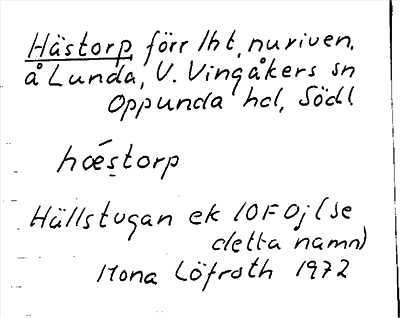 Hästorp förr lht, nu riven,
å Lunda, V. Vingåkers sn
Oppunda hd, Södl
hǽstorp
Hällstugan ek 10F 0j (se
detta namn)
Mona Löfroth 1972